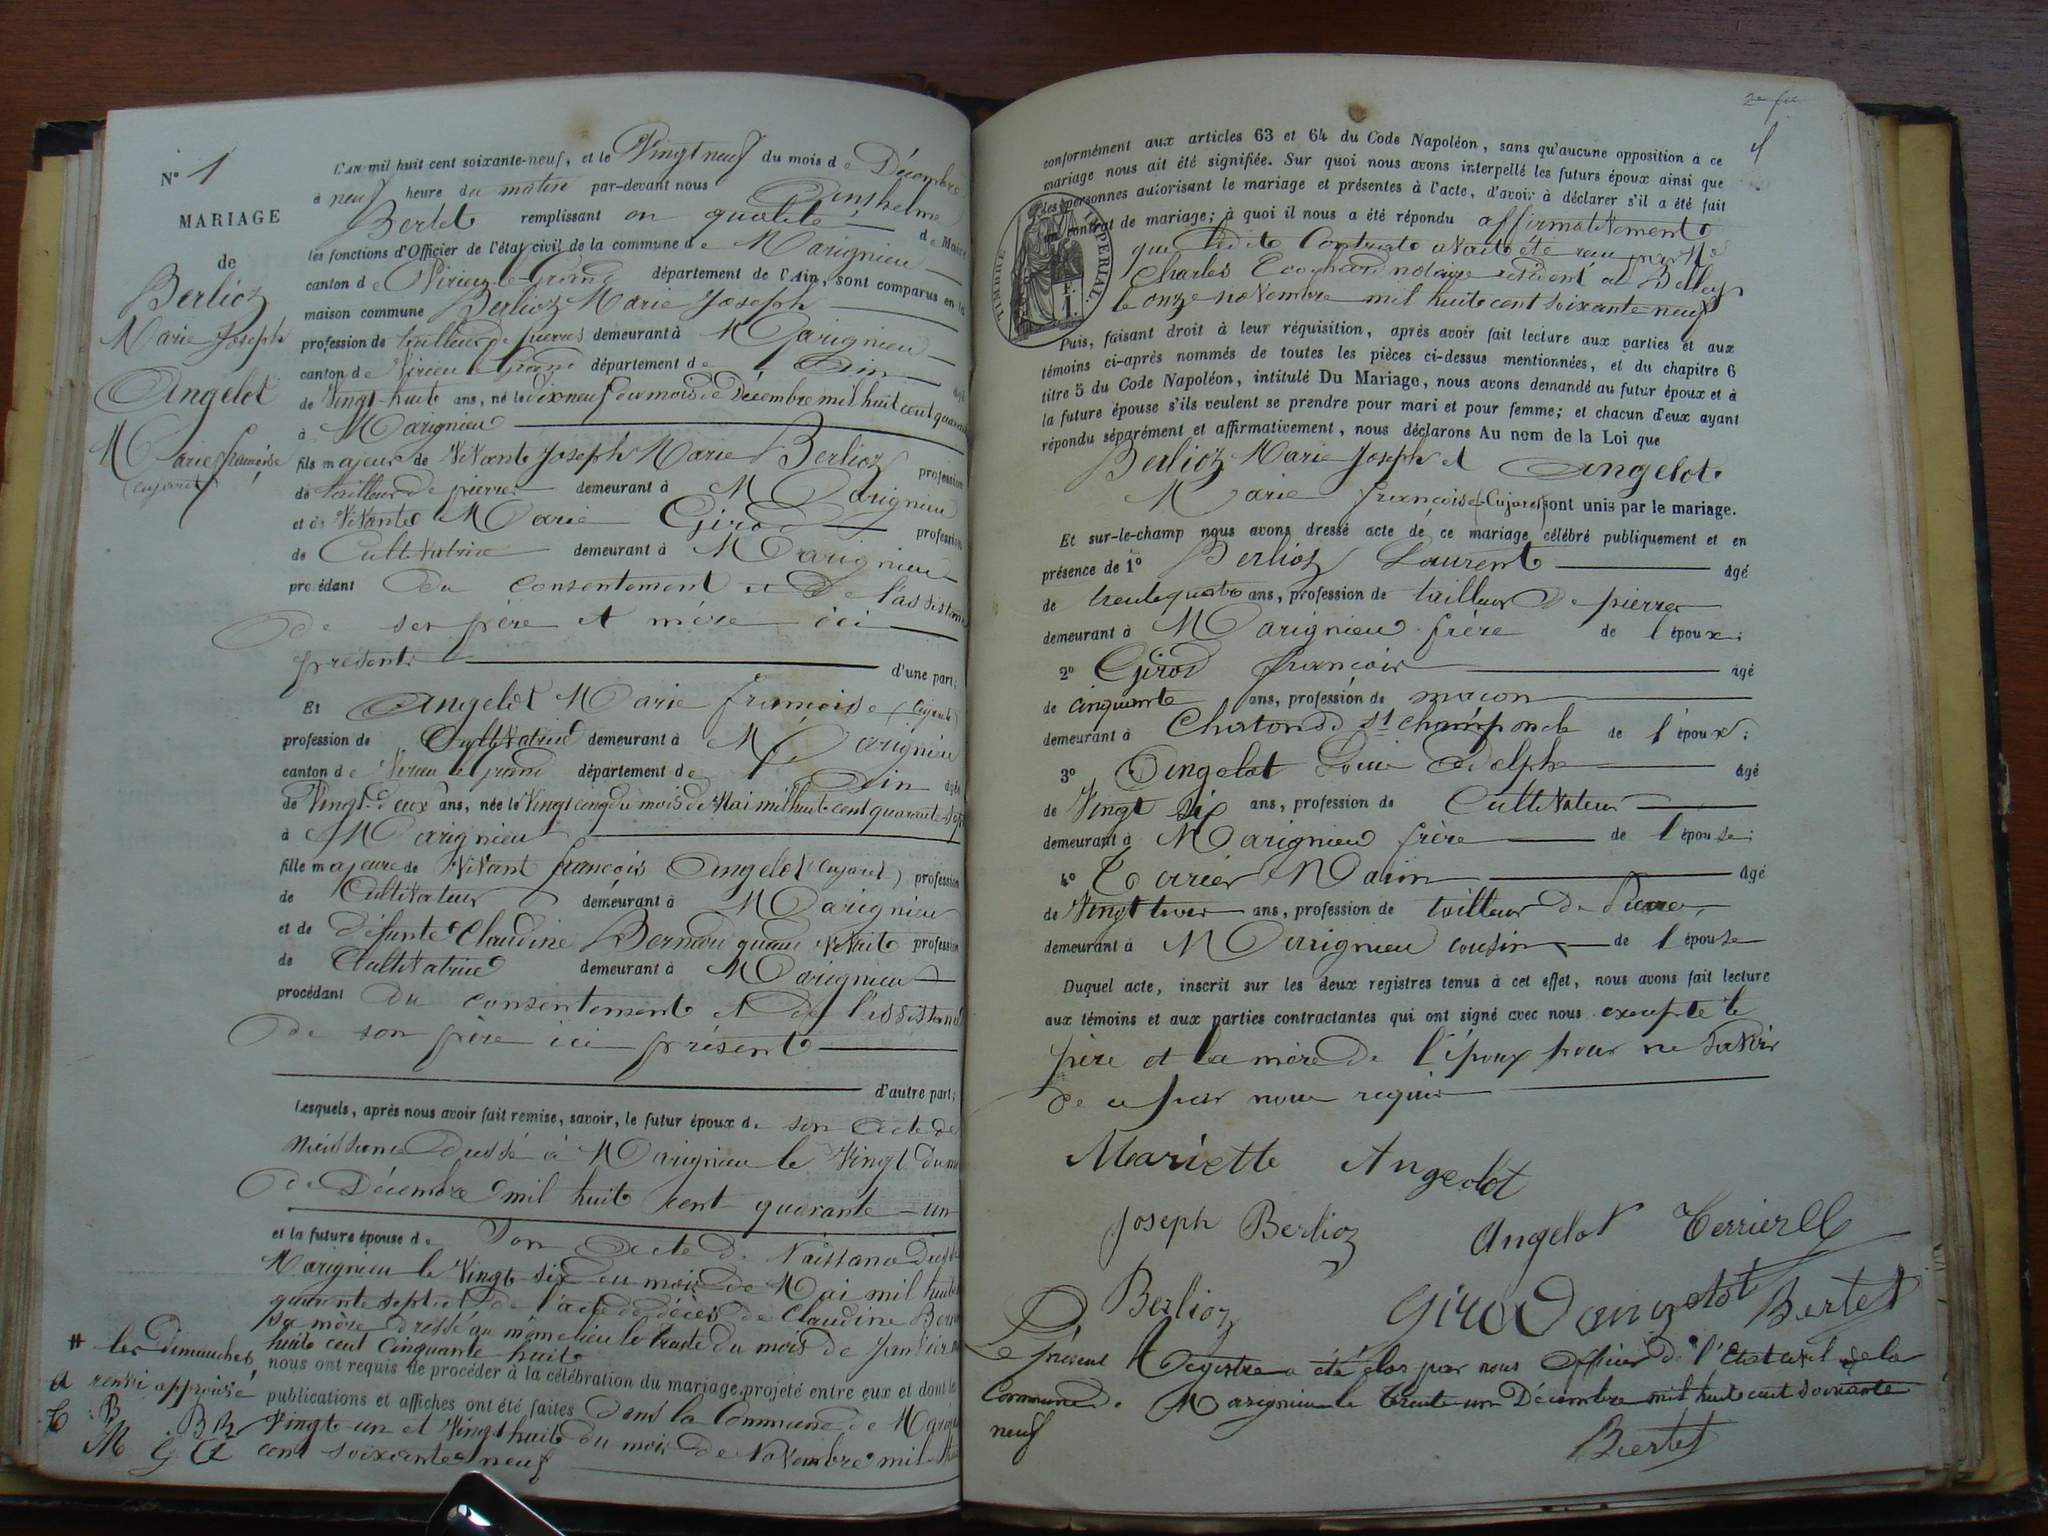 N° 1
MARIAGE
de
Berlioz
Marie Joseph
Angelot
Marie françoise
L'AN mil huit cent soixante-neuf, et le Vingt neuf du mois de Décembre
à neuf heure du matin par-devant nous Anthelme
Bertet remplissant en qualité de Maire
les fonctions d'Officier de l'état civil de la commune de Marignieu
canton de Virieu-le-Grand département de l'Ain, sont comparus en la
maison commune Berlioz Marie Joseph
profession de tailleur de pierres demeurant à Marignieu
canton de Virieu le Grand département de Ain âgé
de Vingt-huit ans, né le dix neuf du mois de Décembre mil huit cent quarante
à Marignieu
fils majeur de Vivant Joseph Marie Berlioz profession
de tailleur de pierres demeurant à Marignieu
et de Vivante Marie Girod profession
de Cultivatrice demeurant à Marignieu
procédant du consentement et de l'assistance
de ses père et mère ici
présents d'une part;
Et Angelot Marie françoise
profession de Cultivatrice demeurant à Marignieu
canton de Virieu le grand département de Ain âgée
de Vingt-deux ans, née le Vingt cinq du mois de Mai mil huit cent quarante sept
à Marignieu
fille majeure de Vivant françois Angelot profession
de Cultivateur demeurant à Marignieu
et de défunte Claudine quand Vivait profession
de Cultivatrice demeurant à Marignieu
procédant du consentement et de l'assistance
de son père ici présent
d'autre part;
Lesquels, après nous avoir fait remise, savoir, le futur époux de son acte de
naissance dressé à Marignieu le Vingt du mois
de Décembre mil huit cent quarante-un
et la future épouse de Son acte de Naissance dressé
Marignieu le Vingt-six du mois de Mai mil huit
quarante sept et de l'acte de décès de Claudine
sa mère dressé au même lieu le trente du mois de Janvier
huit cent cinquante huit
nous ont requis de procéder à la célébration du mariage projeté entre eux et dont les
publications et affiches ont été faites dans la Commune de Marignieu
# les dimanches
et renvoi approuvé
B
BB
M G A
Vingt-un et Vingt huit du mois de Novembre mil
cent soixante neuf
conformément aux articles 63 et 64 du Code Napoléon, sans qu'aucune opposition à ce
mariage nous ait été signifiée. Sur quoi nous avons interpellé les futurs époux ainsi que
les personnes autorisant le mariage et présentes à l'acte, d'avoir à déclarer s'il a été fait
un contrat de mariage; à quoi il nous a été répondu affirmativement
que ledit Contrat avait été reçu par Me
Charles notaire résident à Belley
le onze novembre mil huit cent soixante neuf
TIMBRE IMPERIAL
F. 1.
Puis, faisant droit à leur réquisition, après avoir fait lecture aux parties et aux
témoins ci-après nommés de toutes les pièces ci-dessus mentionnées, et du chapitre 6
titre 5 du Code Napoléon, intitulé Du Mariage, nous avons demandé au futur époux et à
la future épouse s'ils veulent se prendre pour mari et pour femme; et chacun d'eux ayant
répondu séparément et affirmativement, nous déclarons Au nom de la Loi que
Berlioz Marie Joseph et Angelot
Marie françoise sont unis par le mariage.
Et sur-le-champ nous avons dressé acte de ce mariage célébré publiquement et en
présence de 1° Berlioz Laurent âgé
de trente quatre ans, profession de tailleur de pierres
demeurant à Marignieu frère de l'époux;
2° Girod françois âgé
de cinquante ans, profession de maçon
demeurant à de l'époux;
3° Angelot Louis Adolphe âgé
de Vingt six ans, profession de Cultivateur
demeurant à Marignieu frère de l'épouse;
4° Marin âgé
de Vingt trois ans, profession de tailleur de Pierres
demeurant à Marignieu cousin de l'épouse
Duquel acte, inscrit sur les deux registres tenus à cet effet, nous avons fait lecture
aux témoins et aux parties contractantes qui ont signé avec nous excepté le
père et la mère de l'époux pour ne savoir
de ce par nous requis
Mariette Angelot
Joseph Berlioz Angelot Terrier
Berlioz Girod angelot Bertet
Le présent Registre a été clos par nous Officier de l'Etat civil de la
Commune de Marignieu le trente un Décembre mil huit cent soixante
neuf
Bertet